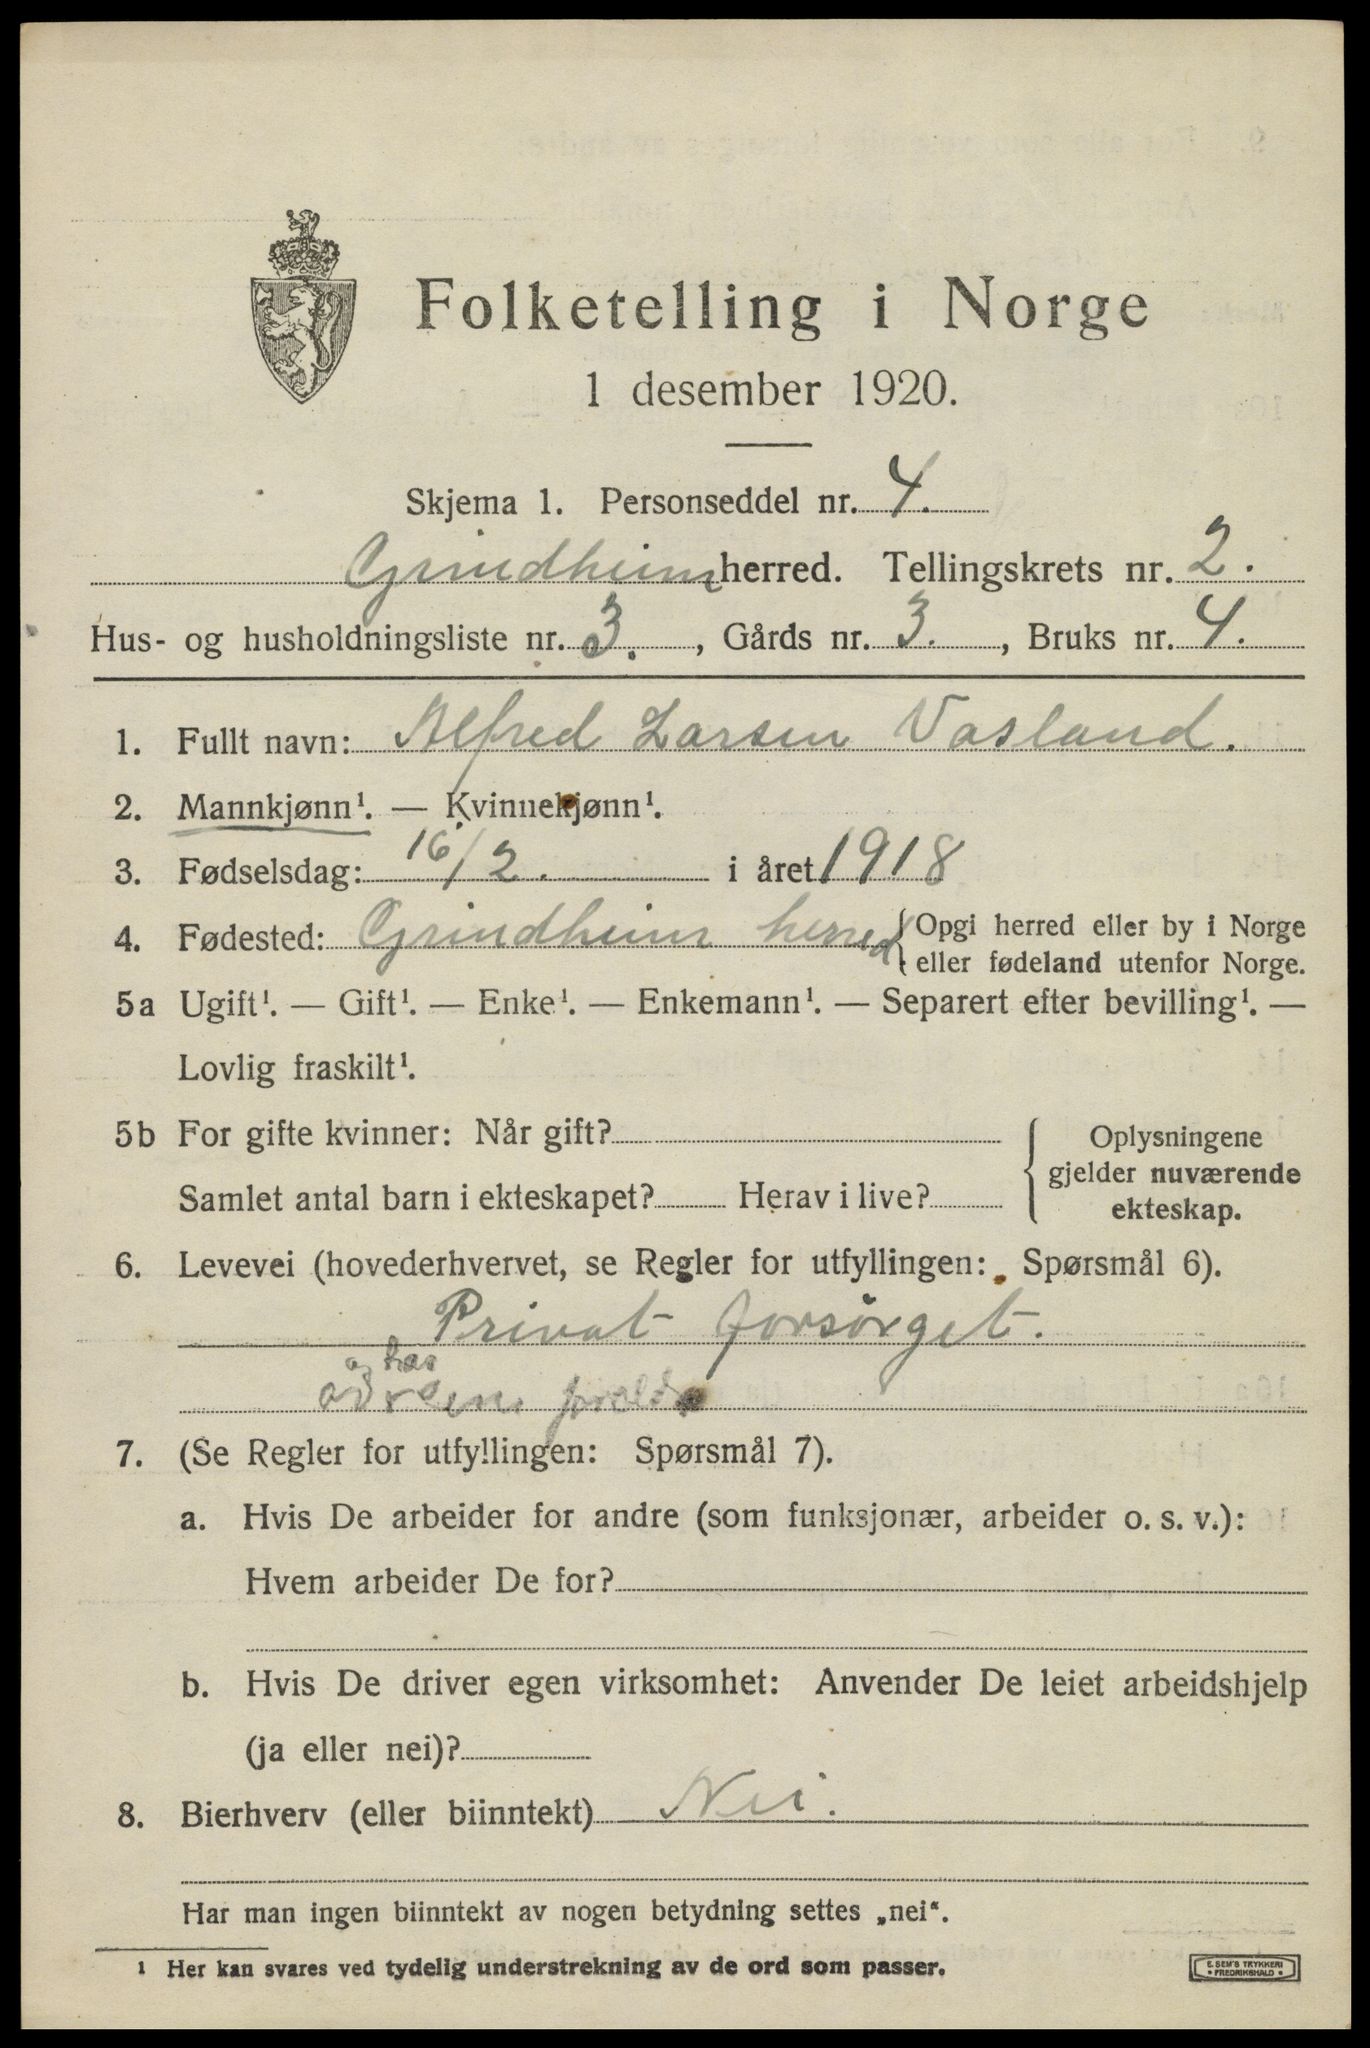 Folketelling i Norge
1 desember 1920.
Skjema 1. Personseddel nr. 4.
Grindheim herred. Tellingskrets nr. 2.
Hus- og husholdningsliste nr. 3., Gårds nr. 3., Bruks nr. 4.
1. Fullt navn: Alfred Larsen Vasland.
2. Mannkjønn¹. — Kvinnekjønn¹.
3. Fødselsdag: 16/2. i året 1918
4. Fødested: Grindheim herred { Opgi herred eller by i Norge
eller fødeland utenfor Norge.
5a Ugift¹. — Gift¹. — Enke¹. — Enkemann¹. — Separert efter bevilling¹. —
Lovlig fraskilt¹.
5b For gifte kvinner: Når gift?
Samlet antal barn i ekteskapet? Herav i live?
{ Oplysningene
gjelder nuværende
ekteskap.
6. Levevei (hovederhvervet, se Regler for utfyllingen: Spørsmål 6).
Privat forsørget.
7. (Se Regler for utfyllingen: Spørsmål 7).
a. Hvis De arbeider for andre (som funksjonær, arbeider o. s. v.):
Hvem arbeider De for?
b. Hvis De driver egen virksomhet: Anvender De leiet arbeidshjelp
(ja eller nei)?
8. Bierhverv (eller biinntekt) Nei.
Har man ingen biinntekt av nogen betydning settes „nei“.
¹ Her kan svares ved tydelig understrekning av de ord som passer.
E. SEM'S TRYKKERI
• FREDRIKSHALD •